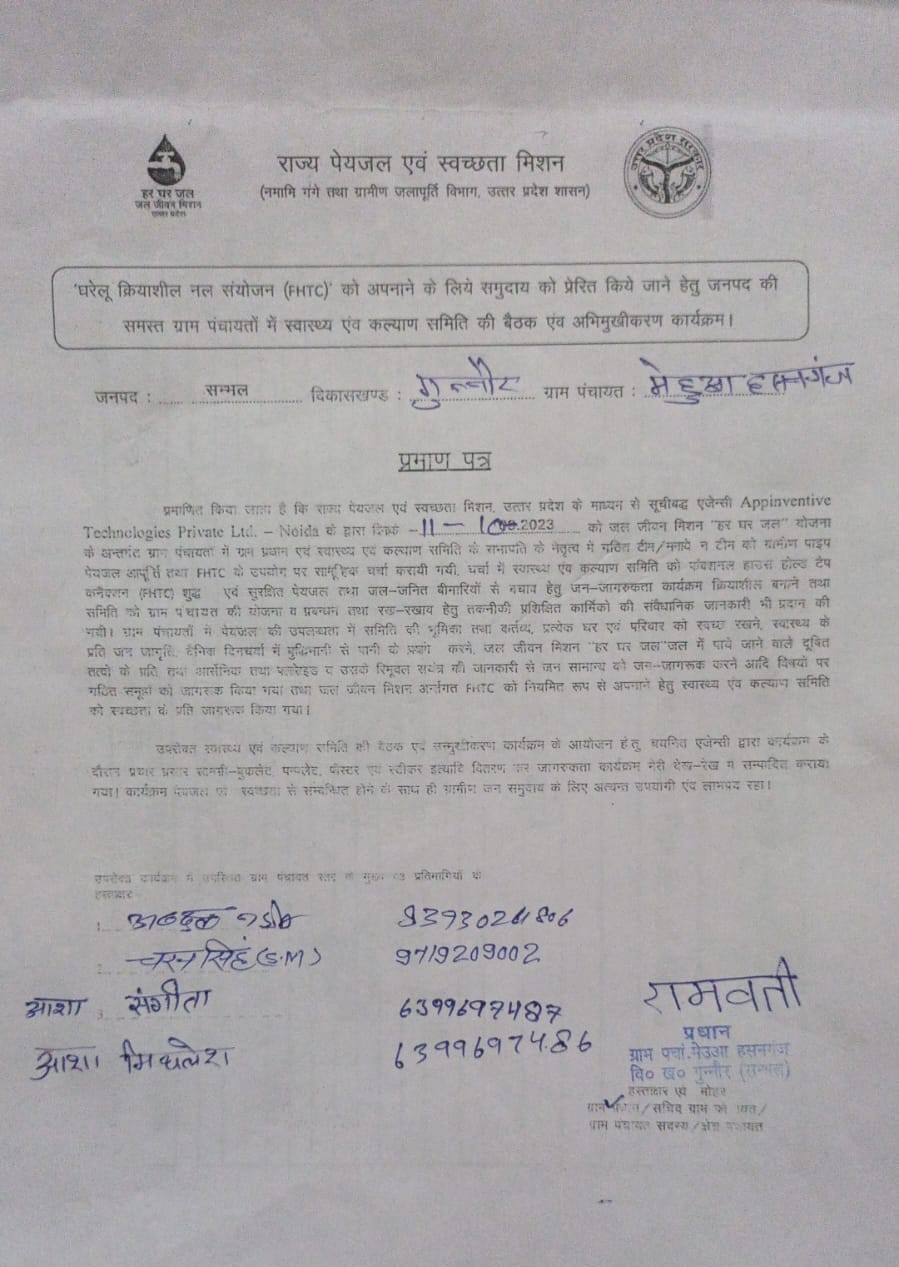 हर घर जल
जल जीवन मिशन
उत्तर प्रदेश
राज्य पेयजल एवं स्वच्छता मिशन
(नमामि गंगे तथा ग्रामीण जलापूर्ति विभाग, उत्तर प्रदेश शासन)
उत्तर प्रदेश सरकार
'घरेलू क्रियाशील नल संयोजन (FHTC)' को अपनाने के लिये समुदाय को प्रेरित किये जाने हेतु जनपद की
समस्त ग्राम पंचायतों में स्वास्थ्य एंव कल्याण समिति की बैठक एंव अभिमुखीकरण कार्यक्रम।
जनपद : सम्भल विकासखण्ड : गुन्नौर ग्राम पंचायत : हसनगंज
प्रमाण पत्र
प्रमाणित किया जाता है कि राज्य पेयजल एवं स्वच्छता मिशन, उत्तर प्रदेश के माध्यम से सूचीबद्ध एजेन्सी Appinventive
Technologies Private Ltd. – Noida के द्वारा दिनांक -11-10-2023 को जल जीवन मिशन "हर घर जल" योजना
के अन्तर्गत ग्राम पंचायतों में ग्राम प्रधान एवं स्वास्थ्य एवं कल्याण समिति के सभापति के नेतृत्व में गठित टीम/ न टीम को ग्रामीण पाइप
पेयजल आपूर्ति तथा FHTC के उपयोग पर सामूहिक चर्चा करायी गयी, चर्चा में स्वास्थ्य एंव कल्याण समिति को फंक्शनल हाउस होल्ड टेप
कनैक्शन (FHTC) शुद्ध एवं सुरक्षित पेयजल तथा जल-जनित बीमारियों से बचाव हेतु जन-जागरुकता कार्यक्रम क्रियाशील बनाने तथा
समिति को ग्राम पंचायत की योजना व प्रबन्धन तथा रख-रखाव हेतु तकनीकी प्रशिक्षित कार्मिको की संवैधानिक जानकारी भी प्रदान की
गयी। ग्राम पंचायतों में पेयजल की उपलब्धता में समिति की भूमिका तथा कर्तव्य, प्रत्येक घर एवं परिवार को स्वच्छ रखने, स्वास्थ्य के
प्रति जन जागृति, दैनिक दिनचर्या में बुद्धिमानी से पानी के प्रयोग करने, जल जीवन मिशन "हर घर जल"जल में पाये जाने वाले दूषित
तत्वो के प्रति तथा आर्सेनिक तथा फ्लोराइड व उसके रिमूवल सयंत्र की जानकारी से जन सामान्य को जन-जागरूक करने आदि विषयों पर
गठित समूहों को जागरूक किया गया तथा जल जीवन मिशन अर्न्तगत FHTC को नियमित रूप से अपनाने हेतु स्वास्थ्य एंव कल्याण समिति
को स्वच्छता के प्रति जागरूक किया गया।
उपरोक्त स्वास्थ्य एवं कल्याण समिति की बैठक एवं कार्यक्रम के आयोजन हेतु, चयनित एजेन्सी द्वारा कार्यक्रम के
दौरान प्रचार प्रसार सामग्री-बुकलेट, पम्पलेट, पोस्टर एवं स्टीकर इत्यादि वितरण कर जागरुकता कार्यक्रम मेरी देख-रेख में सम्पादित कराया
गया। कार्यक्रम पेयजल एवं स्वच्छता से सम्बन्धित होने के साथ ही ग्रामीण जन समुदाय के लिए अत्यन्त उपयोगी एंव लाभप्रद रहा।
उपरोक्त कार्यक्रम में उपस्थित ग्राम पंचायत स्तर के मुख्य प्रतिभागियों के
हस्ताक्षर
1.
2. चरन सिंह (S.M) 9719209002
आशा 3. संगीता 6399697487
आशा मिथलेश 6399697486
रामवती
प्रधान
ग्राम पंचा.मेउआ हसनगंज
वि० ख० गुन्नौर (सम्भल)
हस्ताक्षर एवं मोहर
ग्राम प्रधान/सचिव ग्राम पंचायत/
ग्राम पंचायत सदस्य/क्षेत्र पंचायत